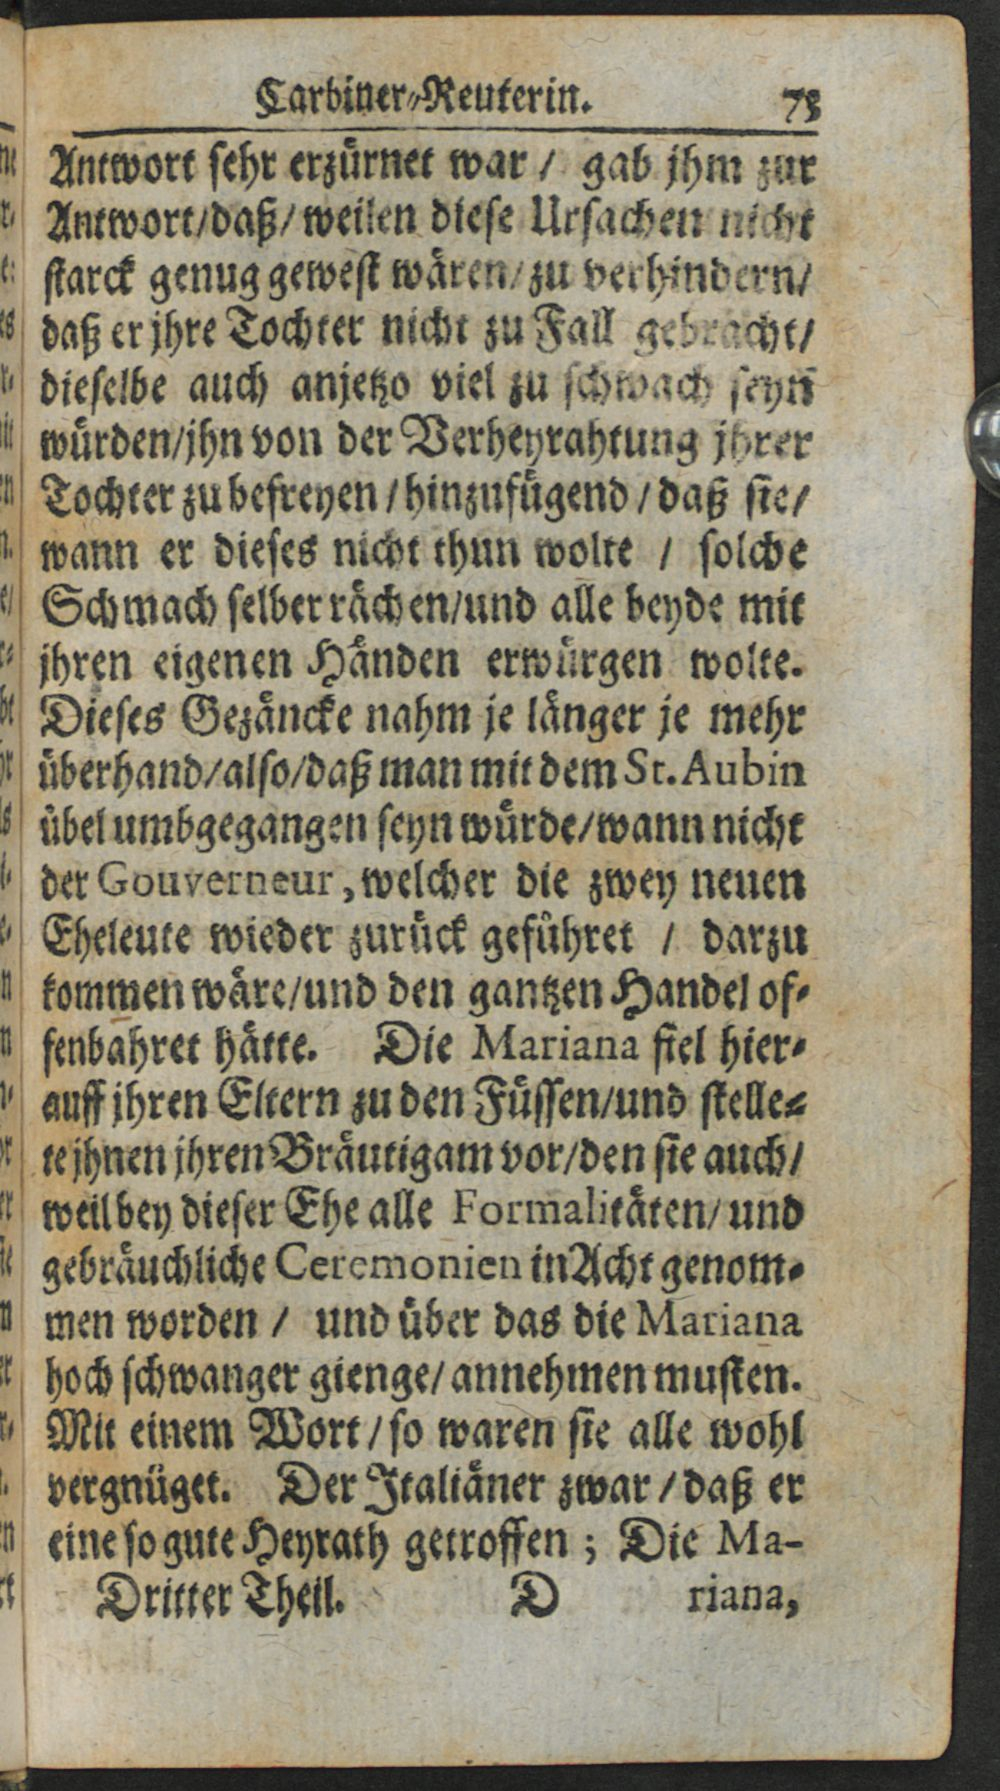 Carbiner-Reuterin. 73
Antwort sehr erzürnet war / gab jhm zur
Antwort/daß/weilen diese Ursachen nicht
starck genug gewest wären/zu verhindern/
daß er jhre Tochter nicht zu Fall gebracht/
dieselbe auch anjetzo viel zu schwach seyn
würden/jhn von der Verheyrahtung jhrer
Tochter zu befreyen / hinzufügend / daß sie/
wann er dieses nicht thun wolte / solche
Schmach selber rächen/und alle beyde mit
jhren eigenen Händen erwürgen wolte.
Dieses Gezäncke nahm je länger je mehr
überhand/also/daß man mit dem St. Aubin
übel umbgegangen seyn würde/wann nicht
der Gouverneur, welcher die zwey neuen
Eheleute wieder zurück geführet / darzu
kommen wäre/und den gantzen Handel of-
fenbahret hätte. Die Mariana fiel hier-
auff jhren Eltern zu den Füssen/und stelle-
te jhnen jhren Bräutigam vor/den sie auch/
weil bey dieser Ehe alle Formalitäten/und
gebräuchliche Ceremonien in Acht genom-
men worden / und über das die Mariana
hoch schwanger gienge/annehmen musten.
Mit einem Wort / so waren sie alle wohl
vergnüget. Der Italiäner zwar / daß er
eine so gute Heyrath getroffen ; Die Ma-
Dritter Theil. D riana,